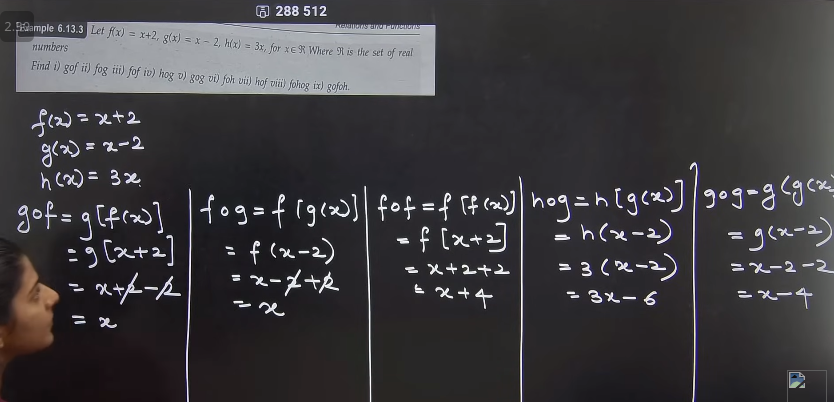 288 512
Relations and Functions
2.5
Example 6.13.3 Let f(x) = x+2, g(x) = x − 2, h(x) = 3x, for x∈ℜ Where ℜ is the set of real
numbers
Find i) gof ii) fog iii) fof iv) hog v) gog vi) foh vii) hof viii) fohog ix) gofoh.
f(x) = x+2
g(x) = x-2
h(x) = 3x.
gof = g[f(x)]
= g[x+2]
= x+2-2
= x
fog = f[g(x)]
= f(x-2)
= x-2+2
= x
fof = f[f(x)]
= f[x+2]
= x+2+2
= x+4
hog = h[g(x)]
= h(x-2)
= 3(x-2)
= 3x-6
gog = g(g(x)
= g(x-2)
= x-2-2
= x-4